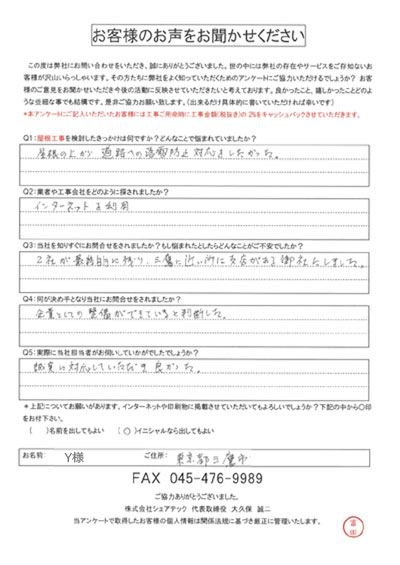 お客様のお声をお聞かせください
この度は弊社にお問い合わせをいただき、誠にありがとうございました。世の中には弊社の存在やサービスをご存知ないお
客様が沢山いらっしゃいます。その方たちに弊社をよく知っていただくためのアンケートにご協力いただけるでしょうか？ お客
様のご意見をお聞かせいただき今後の活動に反映させていただきたいと考えております。良かったこと、嬉しかったことどのよ
うな些細な事でも結構です。是非ご協力お願い致します。（出来るだけ具体的に書いていただければ幸いです）
*本アンケートにご記入いただいたお客様には工事ご所命時に工事金額(税抜き)の 2%をキャッシュバックさせていただきます。
Q1:屋根工事を検討したきっかけは何ですか？どんなことで悩まれていましたか？
屋根の上から 道路への落雪防止対応をしたかった。
Q2:業者や工事会社をどのように探されましたか？
インターネットを利用
Q3:当社を知りすぐにお問合せをされましたか？もし悩まれたとしたらどんなことがご不安でしたか？
2社が最終的に残り、三鷹に近い所に支店がある御社にしました。
Q4:何が決め手となり当社にお問合せをされましたか？
企業としての整備ができていると判断した。
Q5:実際に当社担当者がお伺いしていかがでしたでしょうか？
誠実に対応していただき良かった。
*上記についてお願いがあります。インターネットや印刷物に掲載させていただいてもよろしいでしょうか？下記の中から〇印
をお付下さい。
( )名前を出してもよい (〇)イニシャルなら出してもよい
お名前: Y様 ご住所: 東京都三鷹市
FAX 045-476-9989
ご協力ありがとうございました。
株式会社シェアテック 代表取締役 大久保 誠二
当アンケートで取得したお客様の個人情報は関係法規に基づき厳正に管理いたします。
富田